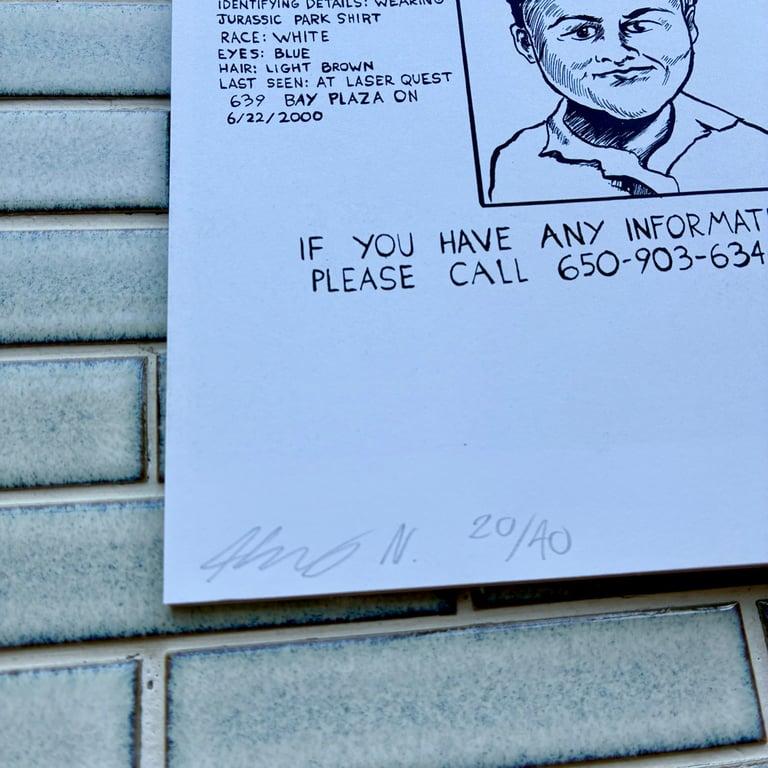 IDENTIFYING DETAILS: WEARING
JURASSIC PARK SHIRT
RACE: WHITE
EYES: BLUE
HAIR: LIGHT BROWN
LAST SEEN: AT LASER QUEST
639 BAY PLAZA ON
6/22/2000
IF YOU HAVE ANY INFORMAT
PLEASE CALL 650-903-634
N. 20/40